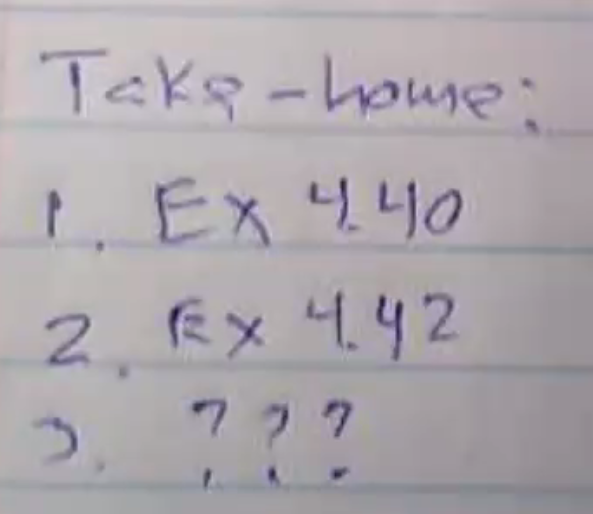 Take-home:
1. Ex 4.40
2. Ex 4.42
3. ???